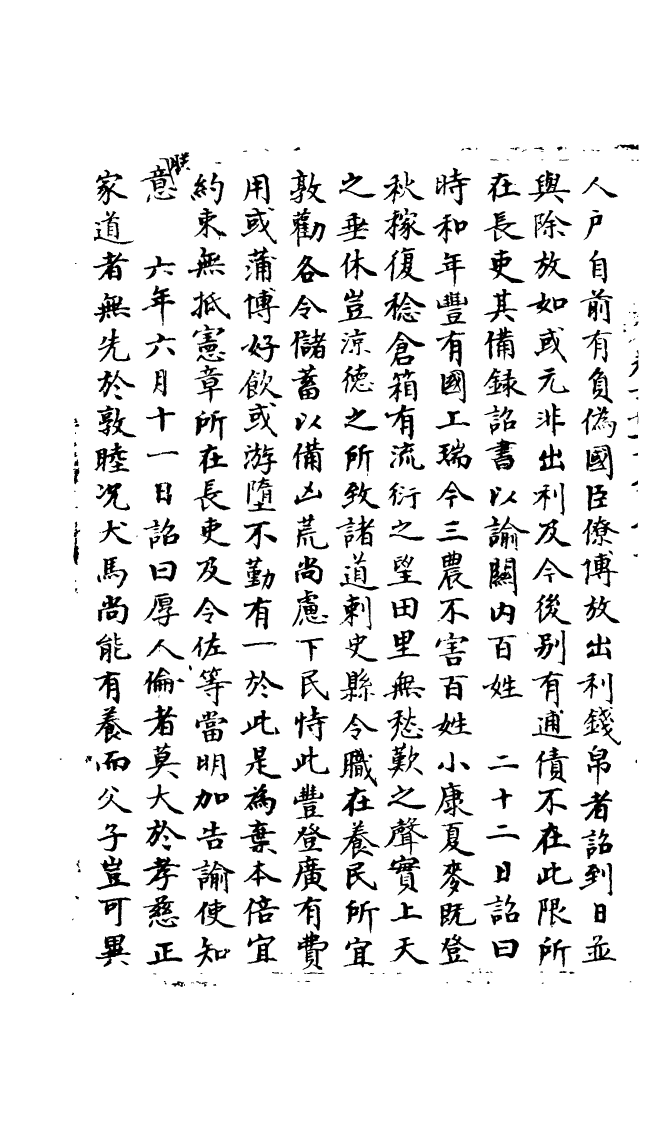 人戸自前有負偽國臣僚博放出利錢帛者詔到日並
與除放如或元非出利及今後别有逋債不在此限所
在長吏其備録詔書以諭闗内百姓　二十二日詔曰
時和年豐有國上瑞今三農不害百姓小康夏麥既登
秋稼復稔倉箱有流衍之望田里無愁歎之聲實上天
之垂休豈涼德之所致諸道刺史縣令職在養民所宜
敦勸各令儲蓄以備凶荒尚慮下民恃此豐登廣有費
用或蒲博好飲或游墮不勤有一於此是為棄本倍宜
約束無抵憲章所在長吏及令佐等當明加告諭使知
朕意　六年六月十一日詔曰厚人倫者莫大於孝慈正
家道者無先於敦睦况犬馬尚能有養而父子豈可異